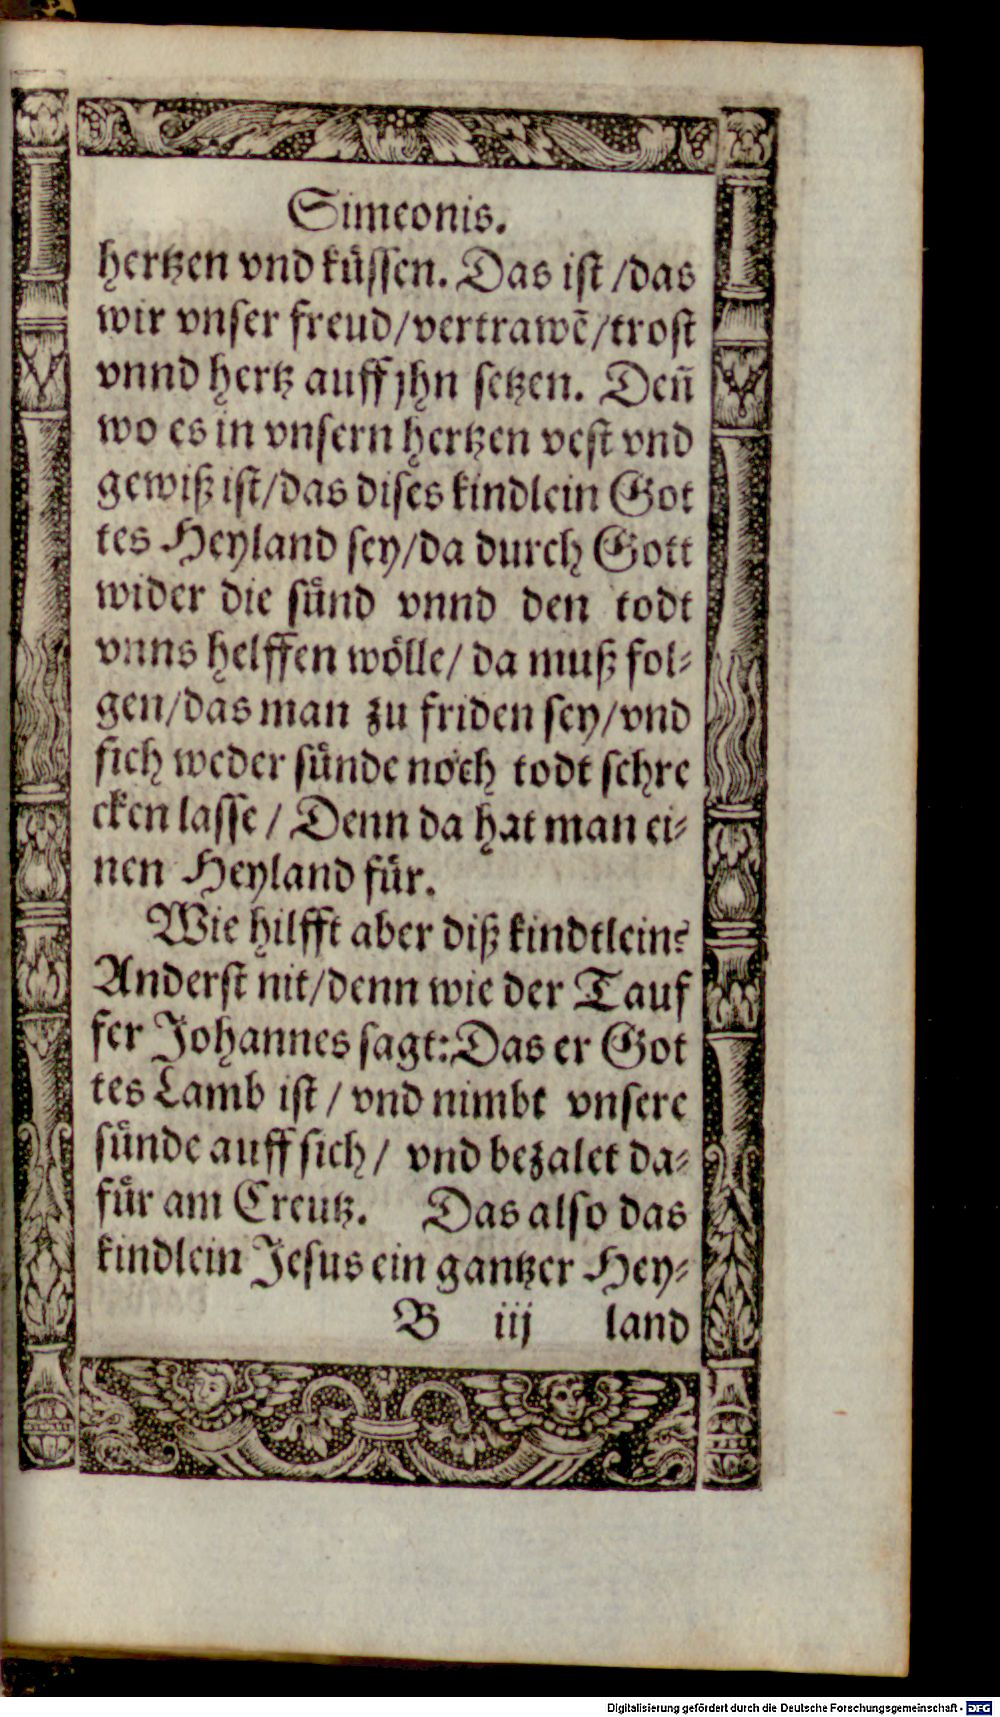 Simeonis.
hertzen vnd kuͤssen. Das ist /das
wir vnser freud/vertrawẽ/trost
vnnd hertz auff jhn setzen. Deñ
wo es in vnsern hertzen vest vnd
gewiß ist/das dises kindlein Got
tes Heyland sey/da durch Gott
wider die suͤnd vnnd den todt
vnns helffen woͤlle/ da muß fol⸗
gen/das man zu friden sey/vnd
sich weder suͤnde noch todt schre
cken lasse / Denn da hat man ei⸗
nen Heyland fuͤr.
Wie hilfft aber diß kindtlein?
Anderst nit/denn wie der Tauf
fer Johannes sagt: Das er Got
tes Lamb ist / vnd nimbt vnsere
suͤnde auff sich / vnd bezalet da⸗
fuͤr am Creutz. Das also das
kindlein Jesus ein gantzer Hey⸗
B iij land
Digitalisierung gefördert durch die Deutsche Forschungsgemeinschaft - DFG